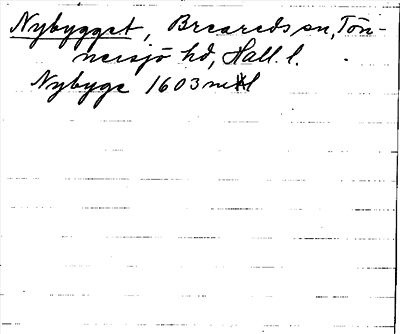 Nybygget, Breareds sn, Tön-
nersjö hd, Hall. l.
Nybyge 1603